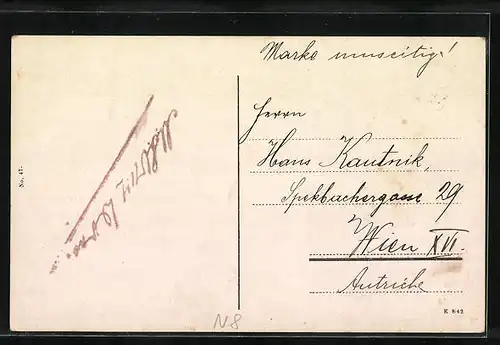 Marke umseitig!
Herrn
Hans Kautnik,
Spekbachergasse 29
Wien XVI.
Autriche
No. 47.
K 842
N8